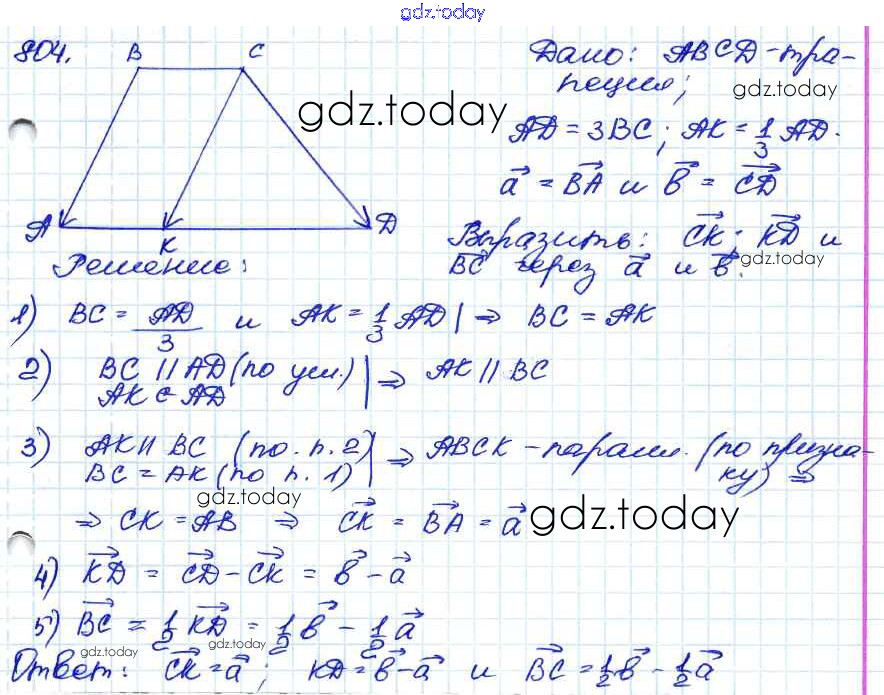 gdz.today
804.
B C
A K D
Дано: ABCD-тра-
пеция;
gdz.today
gdz.today
AD = 3BC; AK = 1/3 AD.
a⃗ = BA⃗ и b⃗ = CD⃗
Выразить: CK⃗; KD⃗ и
BC⃗ через a⃗ и b⃗.
gdz.today
Решение:
1) BC = AD/3 и AK = 1/3 AD | ⇒ BC = AK
2) BC || AD (по усл.) | ⇒ AK || BC
AK ∈ AD
3) AK || BC (по. п. 2) | ⇒ ABCK - паралл. (по призна-
BC = AK (по п. 1) ку) ⇒
gdz.today
⇒ CK = AB ⇒ CK⃗ = BA⃗ = a⃗
gdz.today
4) KD⃗ = CD⃗ - CK⃗ = b⃗ - a⃗
5) BC⃗ = 1/2 KD⃗ = 1/2 b⃗ - 1/2 a⃗
gdz.today gdz.today
Ответ: CK⃗ = a⃗; KD⃗ = b⃗ - a⃗ и BC⃗ = 1/2 b⃗ - 1/2 a⃗